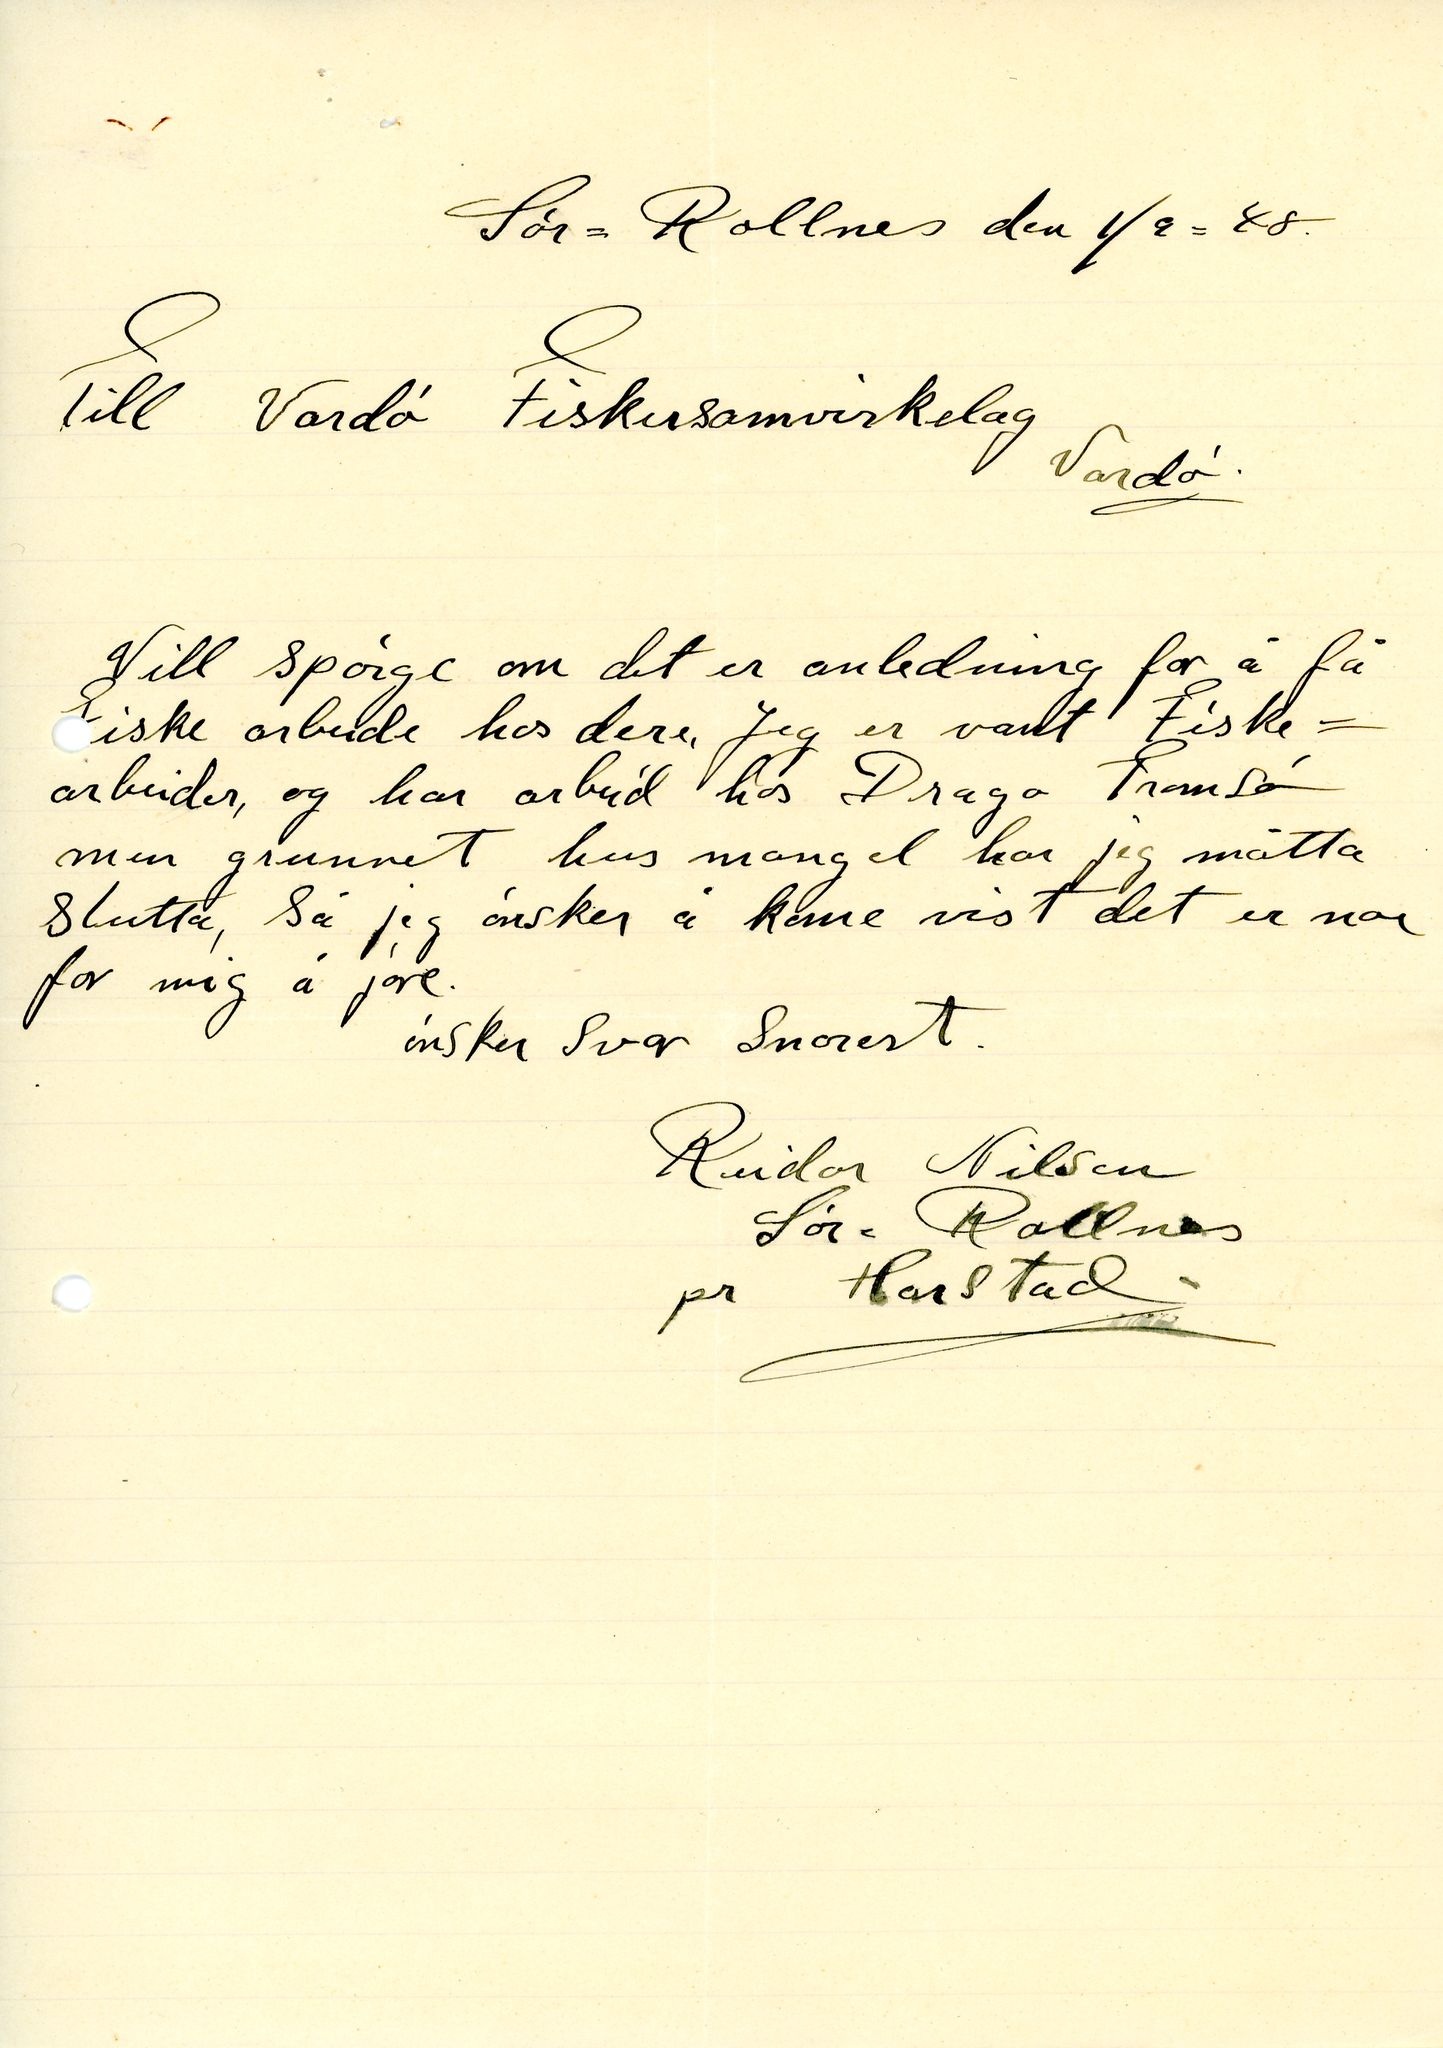 Sór = Rollnes den 1/9 = 48.
Till Vardó Fiskersamvirkelag
Vardó.
Vill spórge om det er anledning for å få
Fiske arbeide hos dere, Jeg er vant Fiske =
arbeider, og har arbeid hos Drago Tromsó
men grunnet hus mangel har jeg måtta
slutta, så jeg ónsker å kome vist det er noe
for mig å jóre.
ónsker svar snarest.
Reidar Nilsen
Sór = Rollnes
pr Harstad